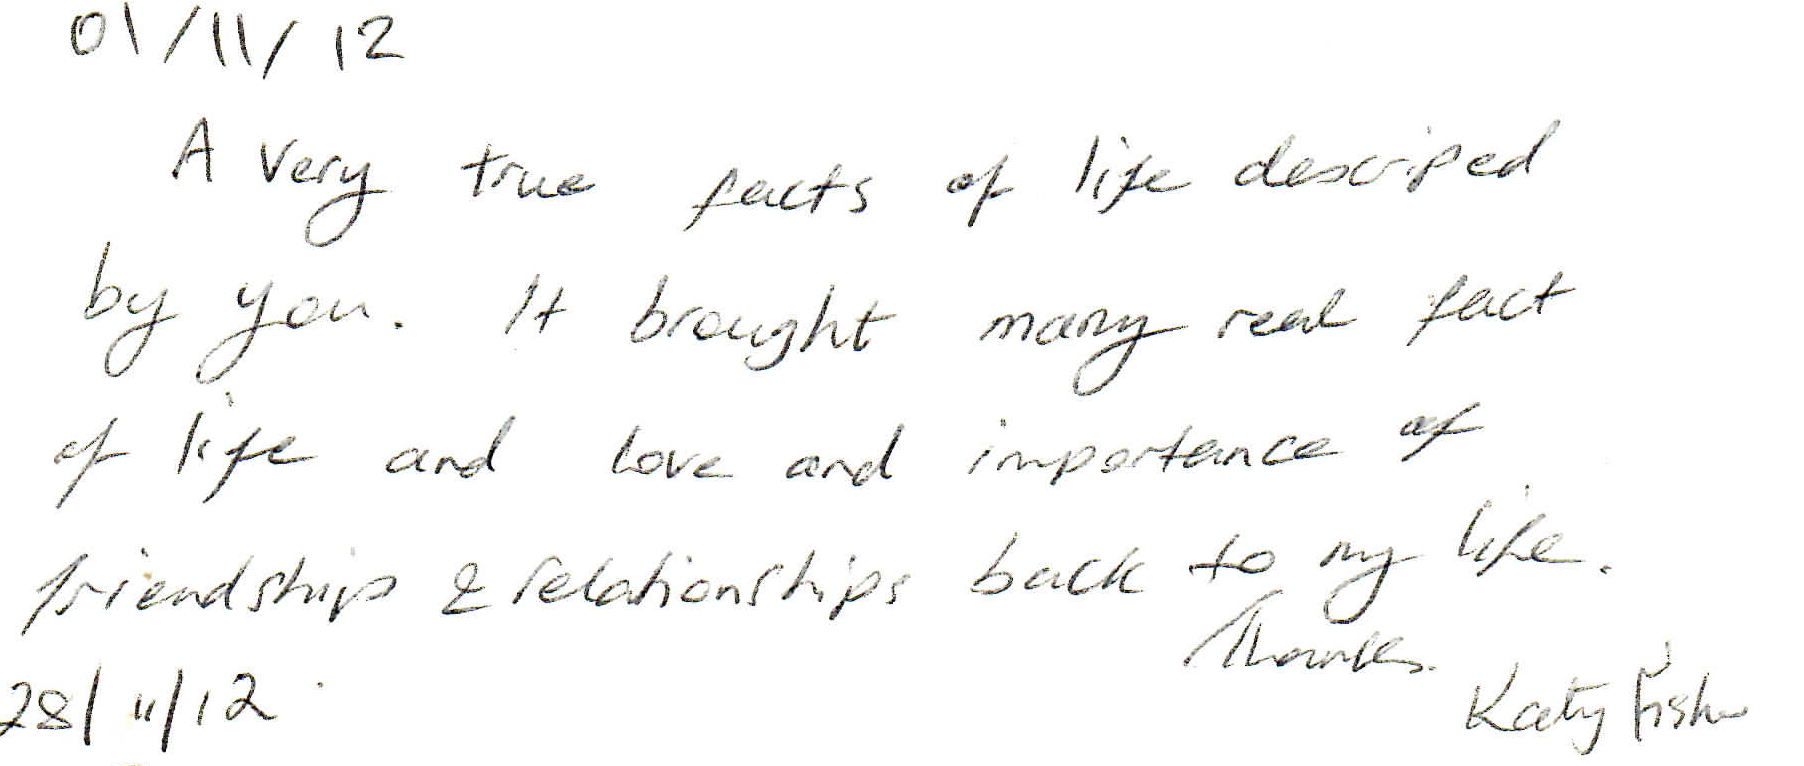 01/11/12
A very true facts of life descriped
by you. It brought many real fact
of life and love and importance of
friendships & relationships back to my life.
Thanks.
Katy Fisher
28/11/12